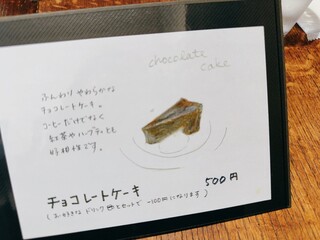 chocolate
cake
ふんわり やわらかな
チョコレートケーキ。
コーヒーだけでなく
紅茶やハーブティーとも
好相性です。
チョコレートケーキ 500円
(お好きなドリンクとセットで -100円になります)